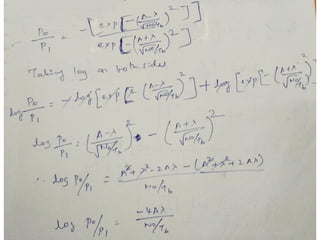 P0/P1 = -[exp[-((A-λ)/√(N0/Tb))²]] / exp[-((A+λ)/√(N0/Tb))²]
Taking log on both sides
log P0/P1 = -log[exp[-((A-λ)/√(N0/Tb))²] + log[exp[-((A+λ)/√(N0/Tb))²]
log P0/P1 = ((A-λ)/√(N0/Tb))² - ((A+λ)/√(N0/Tb))²
∴ log P0/P1 = (A²+λ²-2Aλ-(A²+λ²+2Aλ))/(N0/Tb)
log P0/P1 = -4Aλ/(N0/Tb)